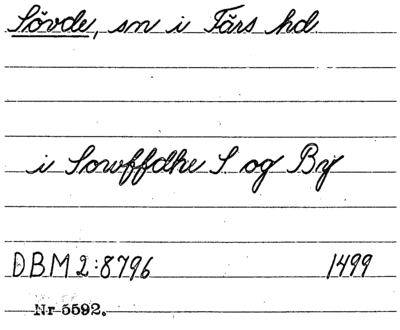 Sövde, sn i Färs hd.
i Sowffdhe S og By
DBM 2:8796 1499
Nr 5592.